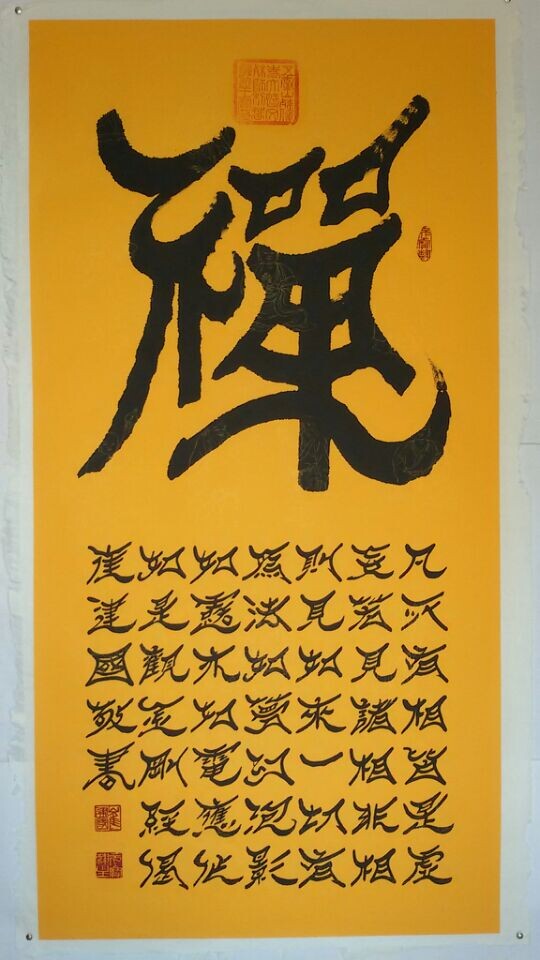 禪
凡所有相皆是虛
妄若見諸相非相
則見如來一切有
爲法如夢幻泡影
如露亦如電應作
如是觀金剛經偈
崔建國敬書